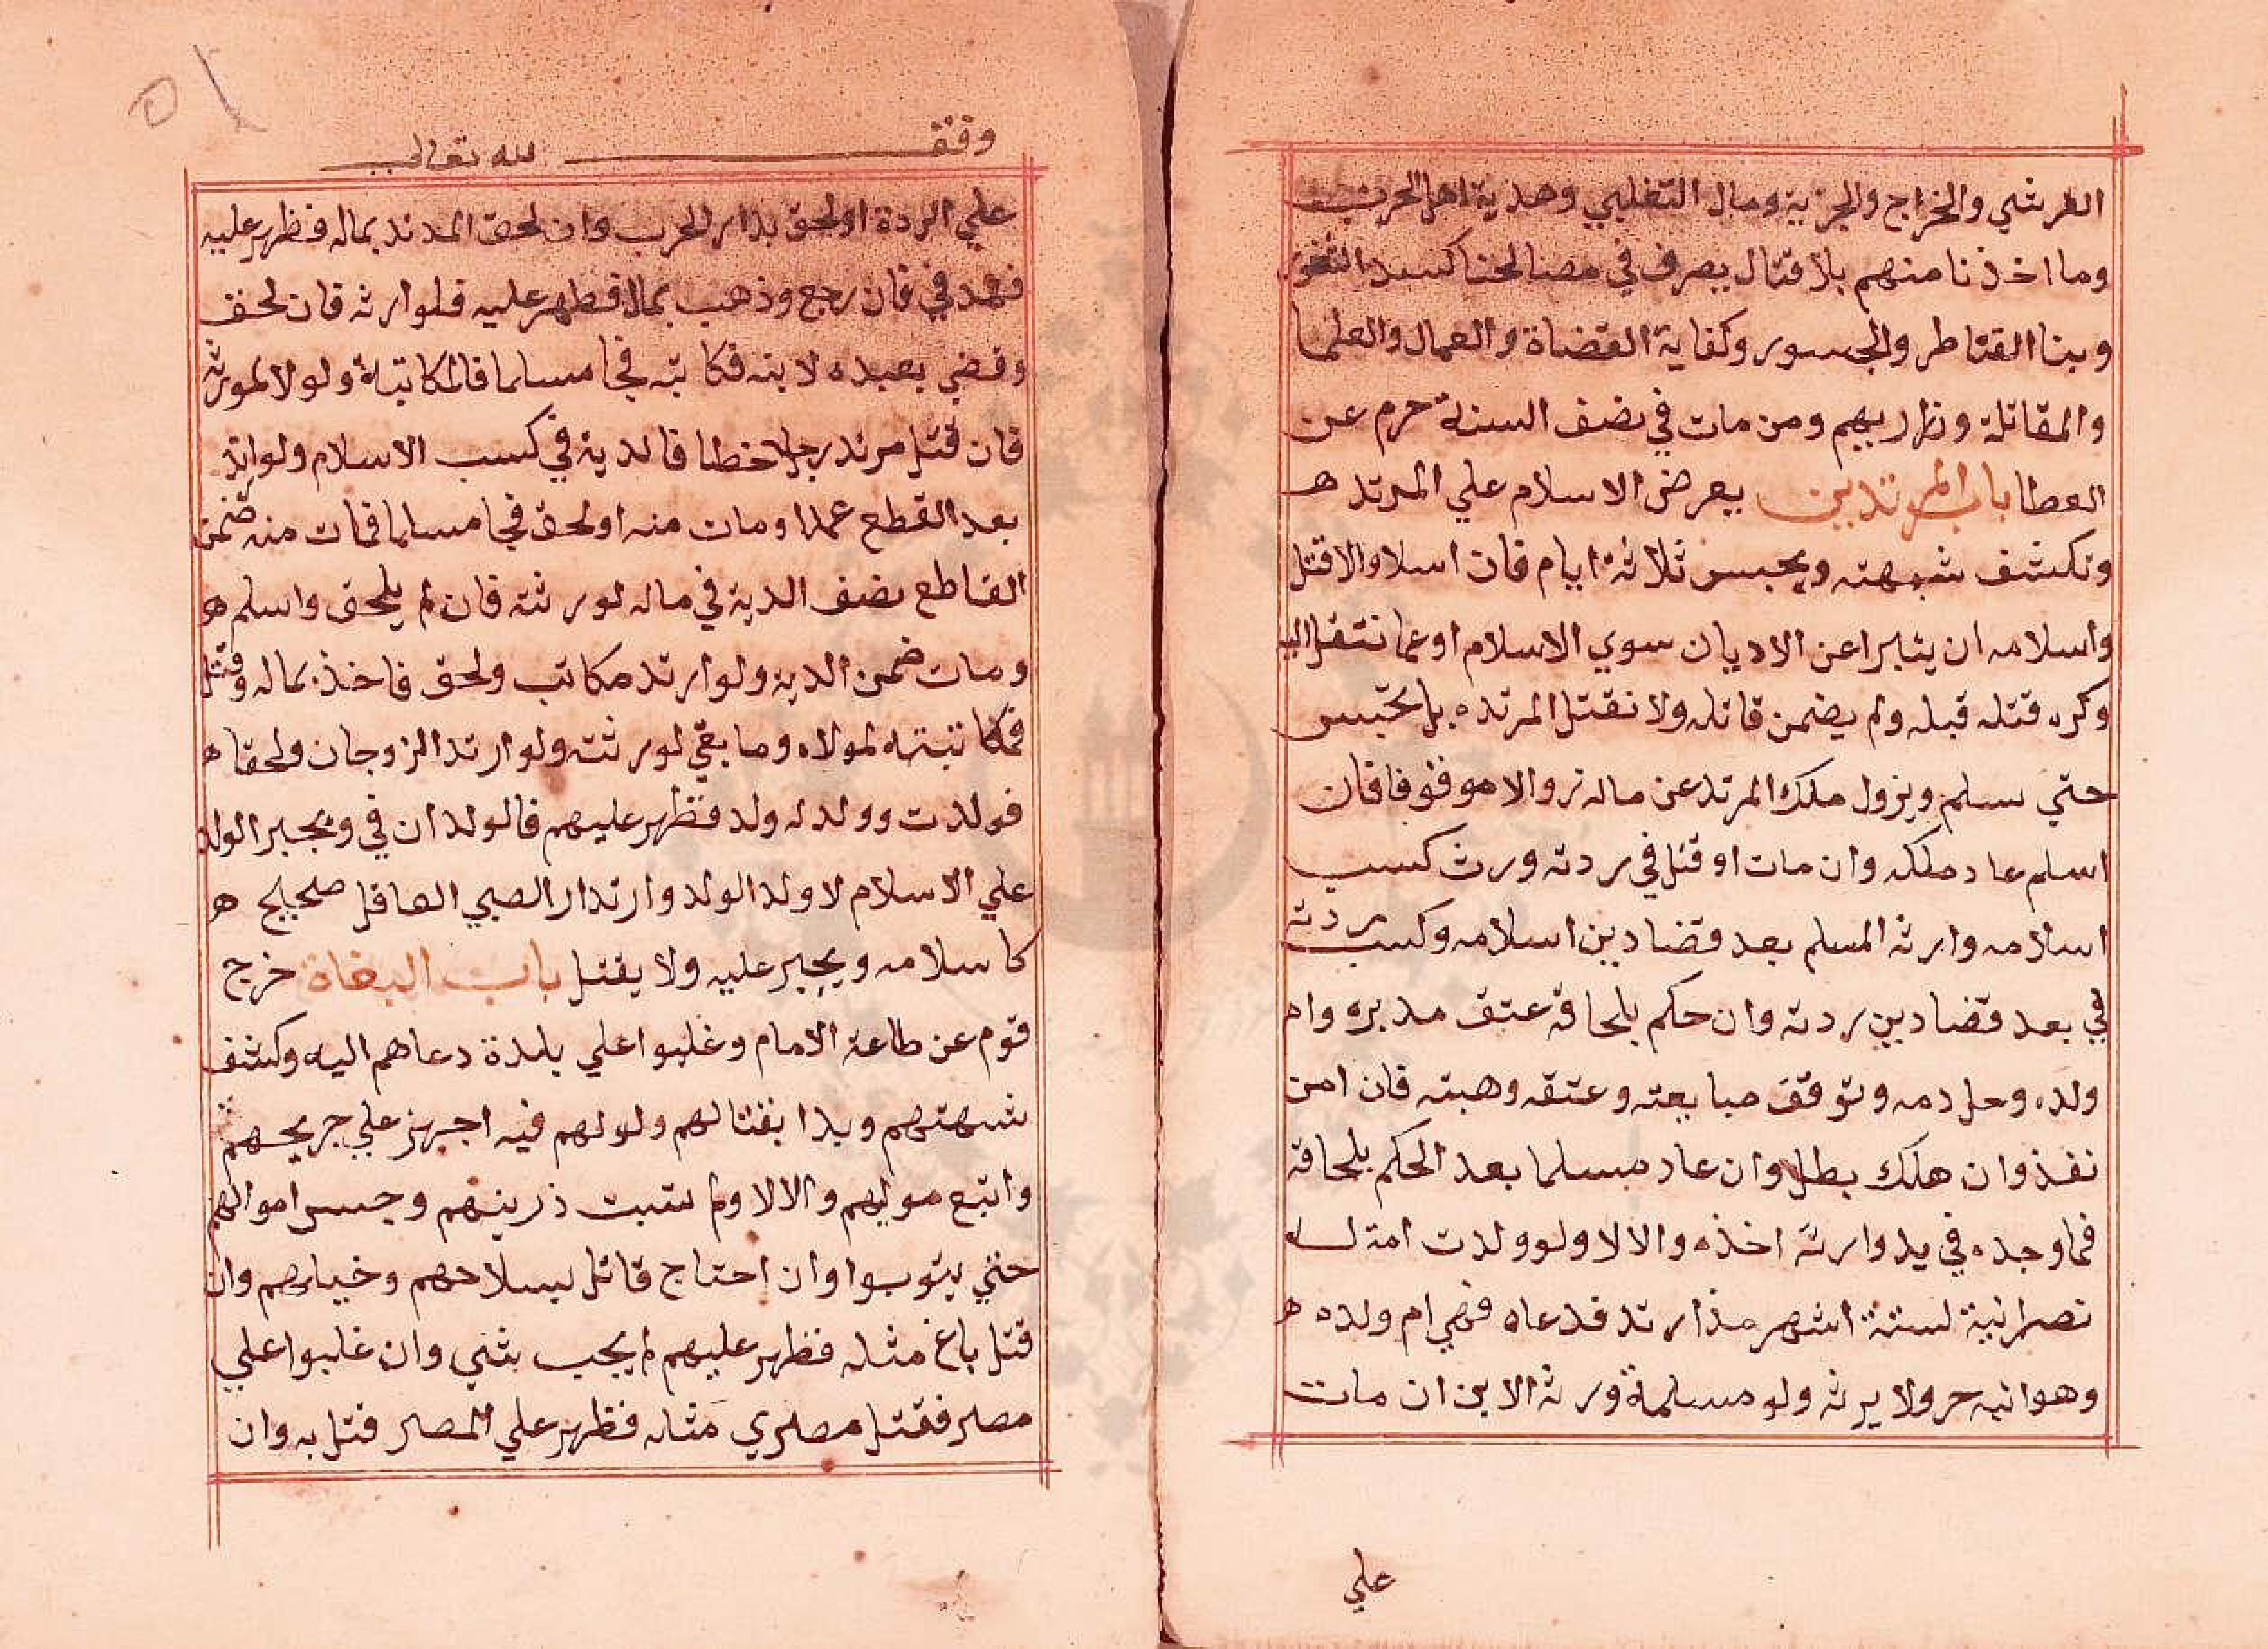 القرشي والخراج والجزية ومال التغلبي وهدية اهل الحرب
وما اخذنا منهم بلا قتال يصرف في مصالحنا كسد الثغور
وبنا القناطر والجسور وكفاية القضاة والعمال والعلما
والمقاتلة وذراريهم ومن مات في نصف السنة حرم عن
العطا باب المرتدين يعرض الاسلام علي المرتد هـ
وتكشف شبهته ويحبس ثلاثة ايام فان اسلم والا قتل
واسلامه ان يتبرا عن الاديان سوي الاسلام او عما انتقل اليه
وكره قتله قبله ولم يضمن قاتله ولا تقتل المرتده بل تحبس
حتي تسلم ويزول ملك المرتد عن ماله زوالا موقوفا فان
اسلم عاد ملكه وان مات او قتل في ردته ورث كسب
اسلامه وارثه المسلم بعد قضا دين اسلامه وكسب ردته
في بعد قضا دين ردته وان حكم بلحاقه عتق مدبره وام
ولده وحل دمه وتوقف مبايعته وعتقه وهبته فان امن
نفذ وان هلك بطل وان عاد مسلما بعد الحكم بلحاقه
فما وجده في يد وارثه اخذه والا لا ولو ولدت امة له
نصرانية لستة اشهر مذ ارتد فدعاه فهي ام ولده هـ
وهو ابنه حر ولا يرثه ولو مسلمة ورثه الابن ان مات
علي
وقف لله تعالي
علي الردة او لحق بدار الحرب وان لحق المرتد بماله فظهر عليه
فهو في فان رجع وذهب بمال فظهر عليه فلوارثه فان لحق
وقضي بعبده لابنه فكاتبه فجا مسلما فالمكاتبة ولولا لمورثه
فان قتل مرتد رجلا خطا فالدية في كسب الاسلام ولو ارتد
بعد القطع عمدا ومات منه او لحق فجا مسلما فمات منه ضمن
القاطع نصف الدية في ماله لورثته فان لم يلحق واسلم هـ
ومات ضمن الدية ولو ارتد مكاتب ولحق فاخذ بماله وقتل
فمكاتبته لمولاه وما بقي لورثته ولو ارتد الزوجان ولحقا هـ
فولدت وولد له ولد فظهر عليهم فالولدان في ويجبر الولد
علي الاسلام لا ولد الولد وارتداد الصبي العاقل صحيح هـ
كاسلامه ويجبر عليه ولا يقتل باب البغاة خرج
قوم عن طاعة الامام وغلبوا علي بلدة دعاهم اليه وكشف
شبهتهم وبدا بقتالهم ولو لهم فيه اجهز علي جريحهم
واتبع موليهم والا لا ولم تسبت ذريتهم وحبس اموالهم
حتي يتوبوا وان احتاج قاتل بسلاحهم وخيلهم وان
قتل باغ مثله فظهر عليهم لم يجب بشي وان غلبوا علي
مصر فقتل مصري مثله فظهر علي المصر قتل به وان